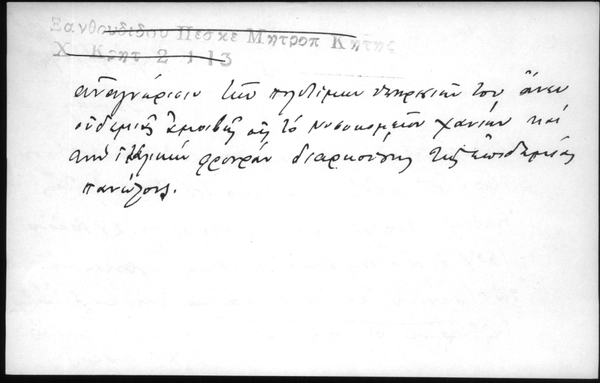 Ξανθουδίδου Πεσκε Μητροπ Κητης
Χ Κρητ 2 1 13
ἀναγνώρισιν τῶν πολυτίμων ὑπηρεσιῶν του ἄνευ
οὐδεμιᾶς ἀμοιβῆς εἰς τὸ Νοσοκομεῖον Χανίων καὶ
φρουρὰν διαρκούσης τῆς ἐπιδημίας
πανώλους.